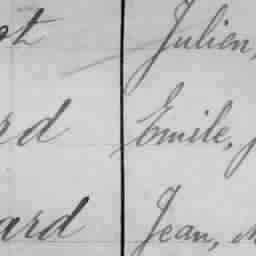 ot Julien,
rd Emile,
ard Jean,